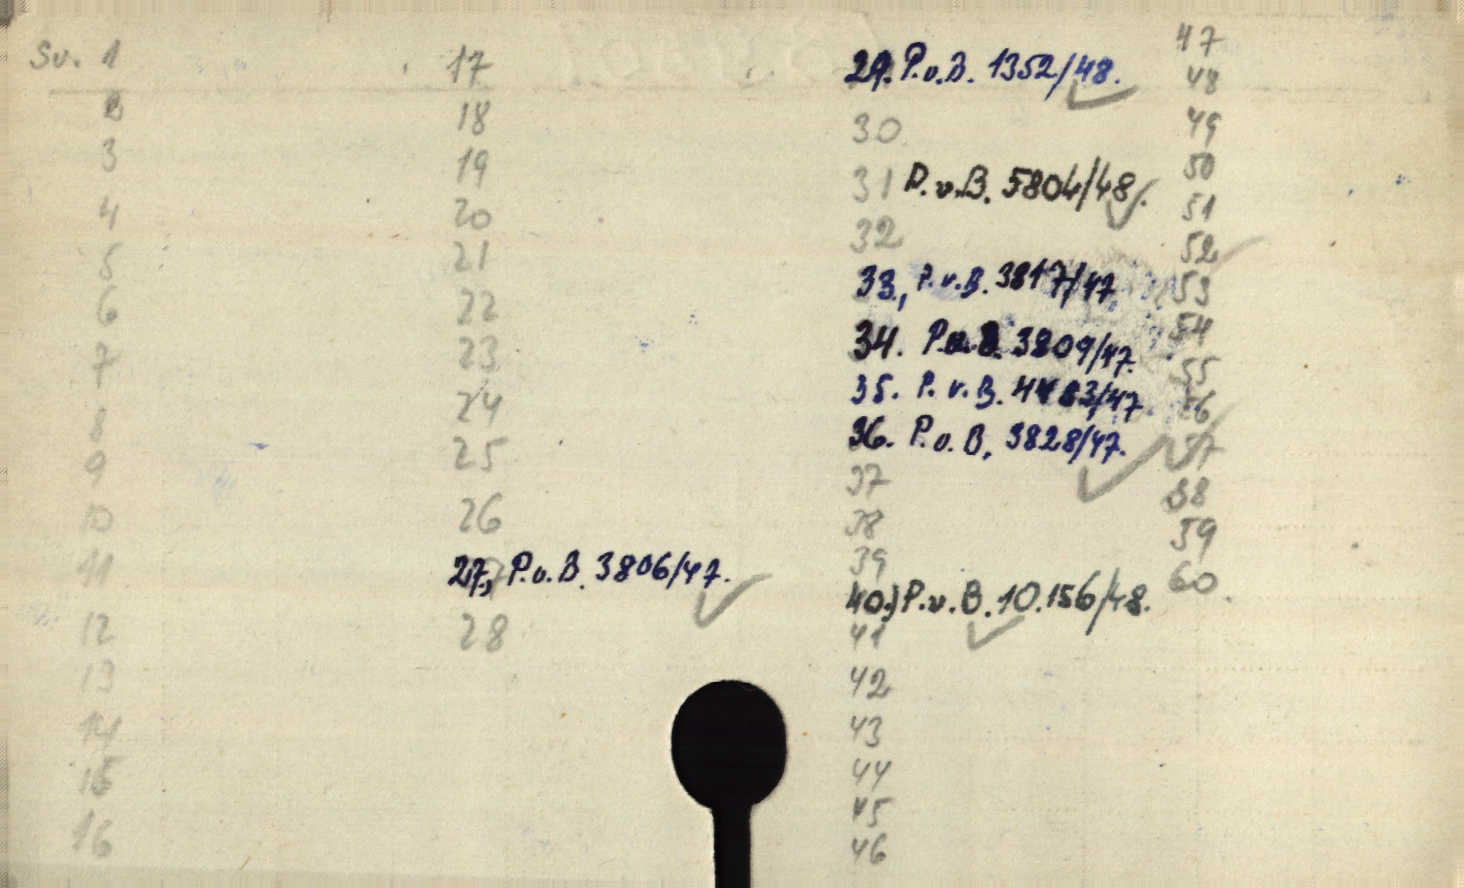 Sv. 1
2
3
4
5
6
7
8
9
10
11
12
13
14
15
16
17
18
19
20
21
22
23
24
25
26
27, P.v.B. 3806/47.
28
29. P.v.B. 1352/48.
30
31 P.v.B. 5804/48.
32
33, P.v.B. 3817/47
34. P.v.B. 3809/47.
35. P.v.B. 4483/47
36. P.v.B. 3828/47.
37
38
39
40.) P.v.B. 10.156/48.
41
42
43
44
45
46
47
48
49
50
51
52
53
54
55
56
57
58
59
60